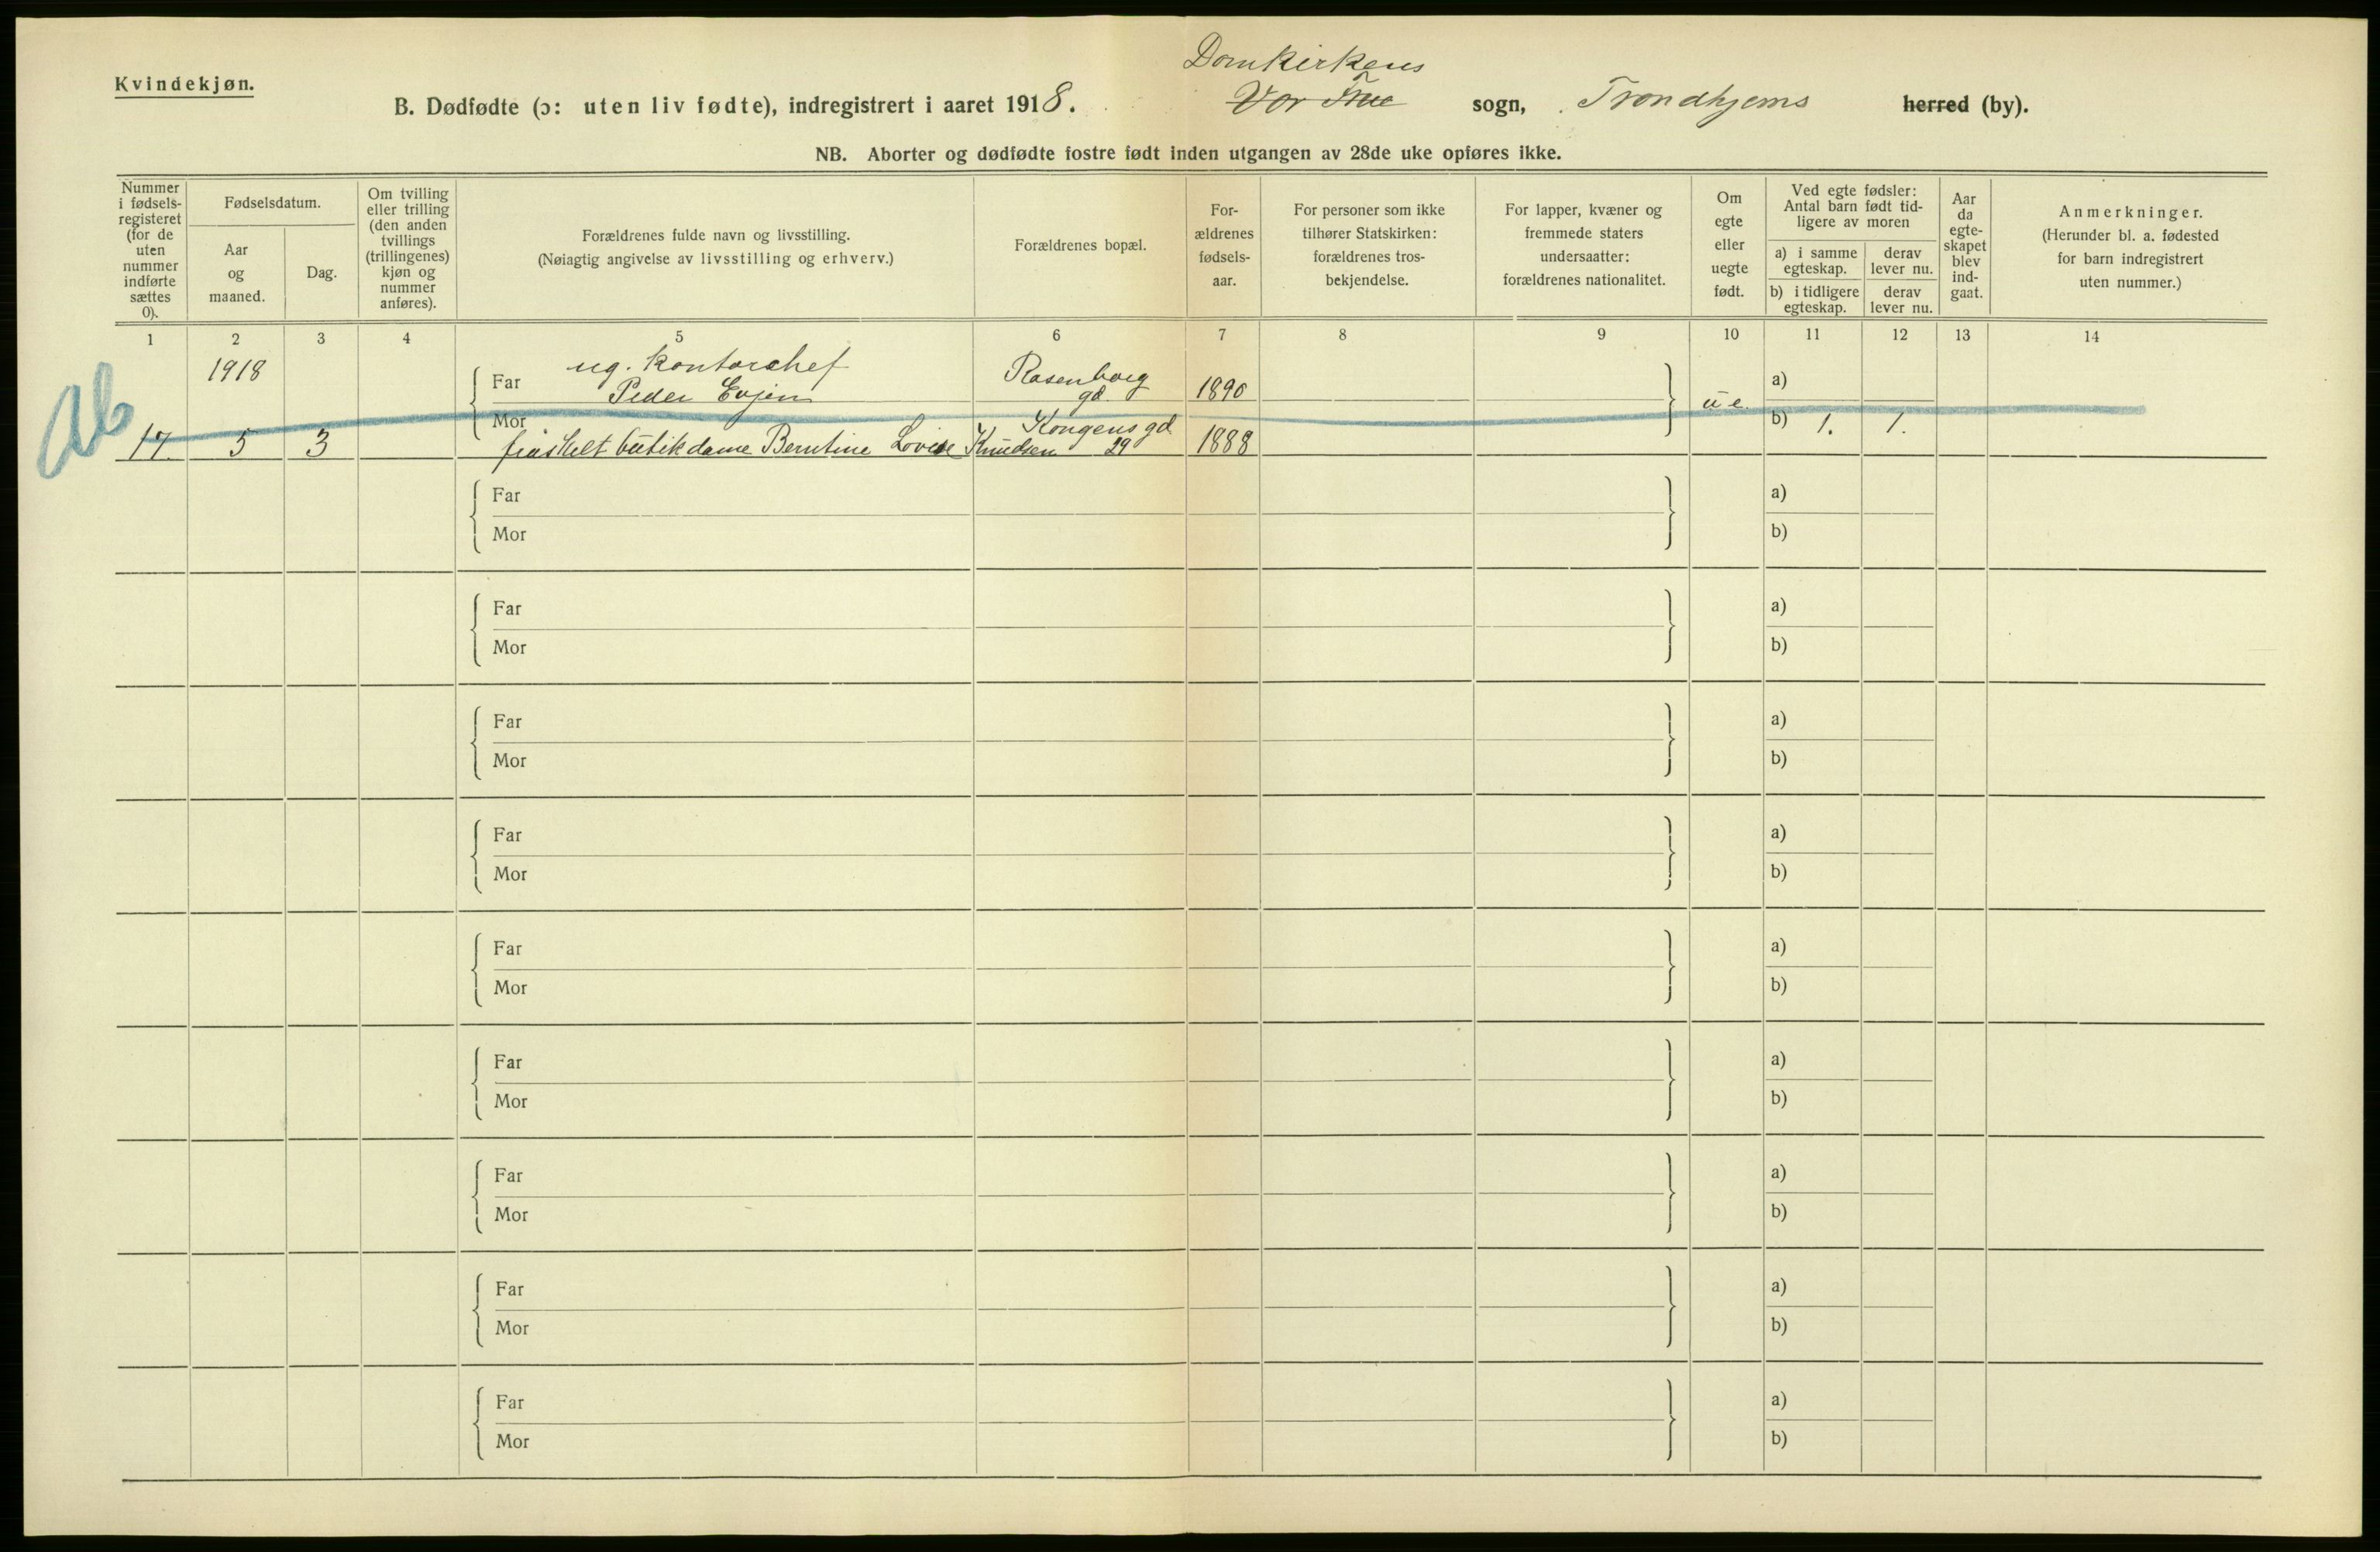 Kvindekjøn.
Domkirkens
B. Dødfødte (ɔ: uten liv fødte), indregistrert i aaret 1918. Vor Frue sogn, Trondhjems herred (by).
NB. Aborter og dødfødte fostre født inden utgangen av 28de uke opføres ikke.
Nummer
i fødsels-
registeret
(for de
uten
nummer
indførte
sættes
0).
Fødselsdatum.
Aar
og
maaned.
Dag.
Om tvilling
eller trilling
(den anden
tvillings
(trillingenes)
kjøn og
nummer
anføres).
Forældrenes fulde navn og livsstilling.
(Nøiagtig angivelse av livsstilling og erhverv.)
Forældrenes bopæl.
For-
ældrenes
fødsels-
aar.
For personer som ikke
tilhører Statskirken:
forældrenes tros-
bekjendelse.
For lapper, kvæner og
fremmede staters
undersaatter:
forældrenes nationalitet.
Om
egte
eller
uegte
født.
Ved egte fødsler:
Antal barn født tid-
ligere av moren
a) i samme
egteskap.
derav
lever nu.
b) i tidligere
egteskap.
derav
lever nu.
Aar
da
egte-
skapet
blev
ind-
gaat.
Anmerkninger.
(Herunder bl. a. fødested
for barn indregistrert
uten nummer.)
1 2 3 4 5 6 7 8 9 10 11 12 13 14
1918 ug. kontorchef Rosenborg
Far Peder Evjen gd. 1890 a)
Ab
Mor Kongens gd. ue. b) 1. 1.
17. 5 3 fraskelt butikdame Berntine Lovise Knudsen 29 1888
Far a)
Mor b)
Far a)
Mor b)
Far a)
Mor b)
Far a)
Mor b)
Far a)
Mor b)
Far a)
Mor b)
Far a)
Mor b)
Far a)
Mor b)
Far a)
Mor b)